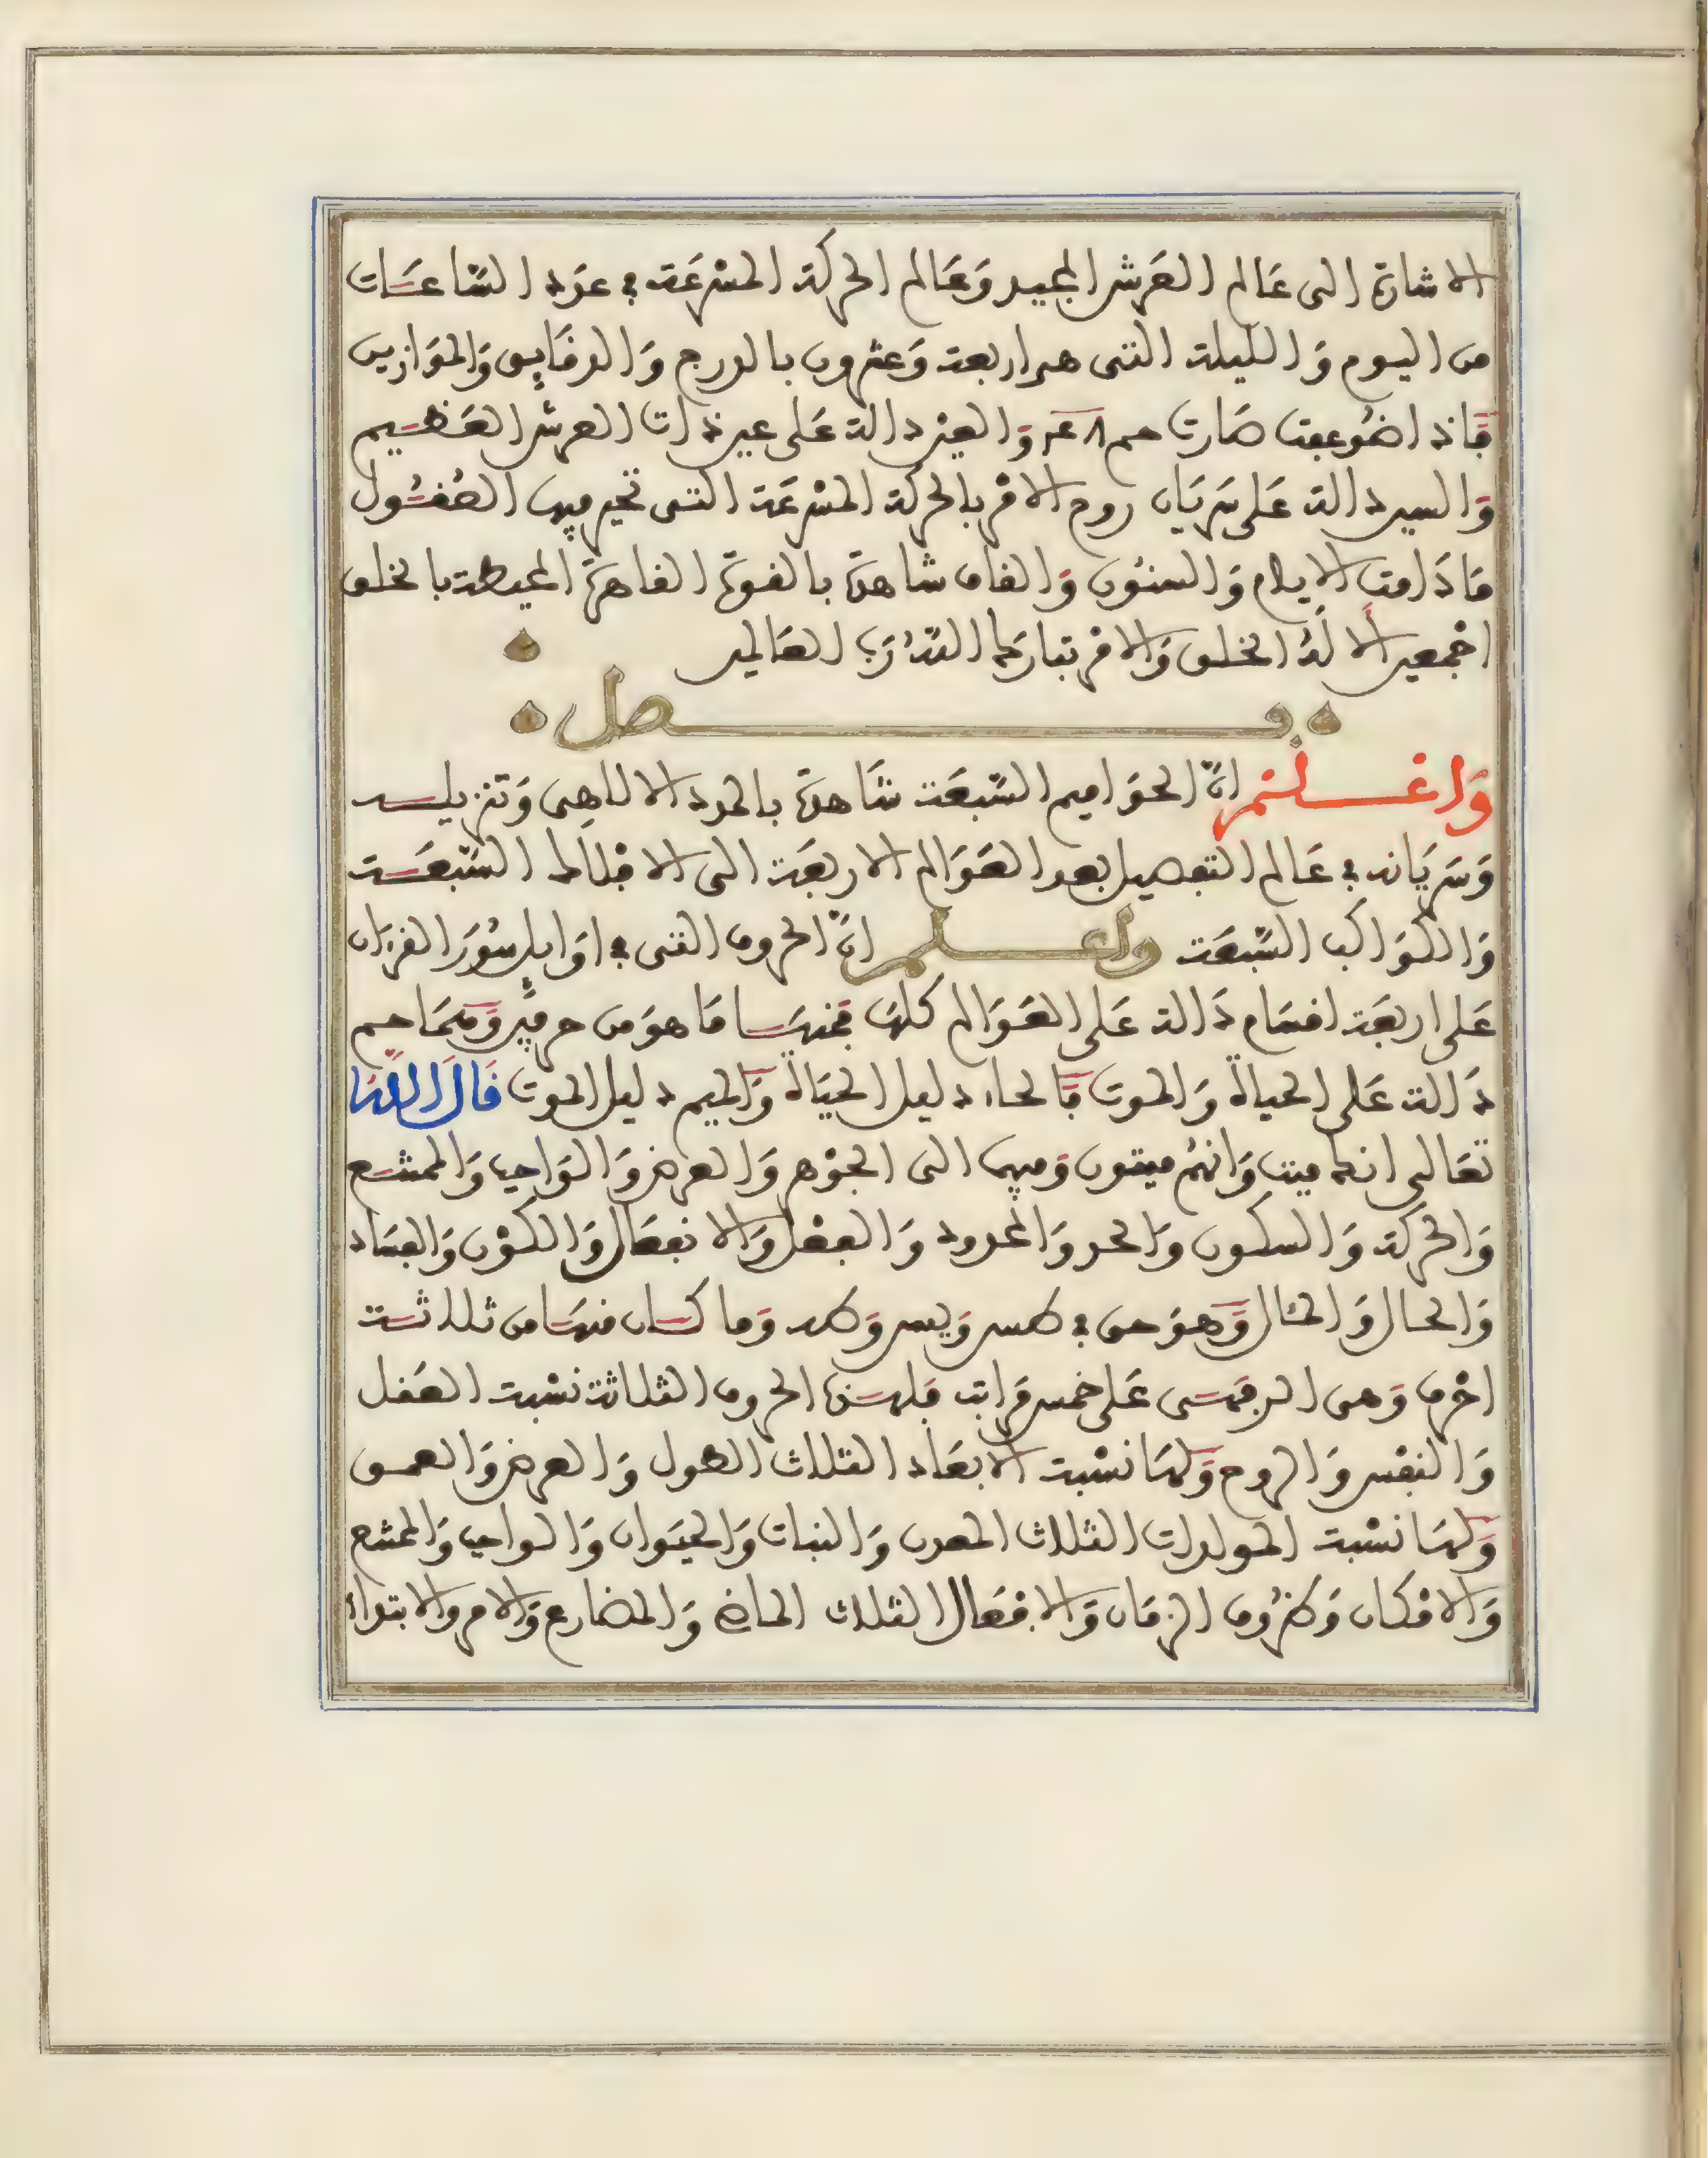 الاشارة الى عَالم العَرش المجيد وَعَالم الحركة المسْرعَة في عدَد السَّاعَات
من اليوم وَالليلة التى هى اربعة وَعشرون بالدرج وَالدقَايِق وَالموَازين
فَاذا ضُوعفت صَارت حم وَالعين دالة عَلى عين ذات العرش العَظيم
وَالسين دالة عَلى سَرَيَان روح الامْر بالحركة المسْرعَة التى تحير فيها العُقُول
مَا دَامت الايام وَالسنُون وَالقاف شاهدة بالقوة القاهرَة المحيطة بالخلق
اجْمعين الاَ لَهُ الخلق وَالامْر تبارَك اللهُ رَبّ العَالمين
فصل
وَاعْلَمْ انَّ الحوَاميم السَّبعَة شَاهدة بالمدد الالاهِى وَتنزيله
وَسَرَيَانه في عَالم التفصيل بعد العَوَالم الاربعَة الى الافْلَاك السَّبعَة
وَالكوَاكب السَّبعَة واعلم انَّ الحروف التى في اوَايل سُوَر القرءان
عَلى اربعَة اقسَام دَالة عَلى العَوَالم كلهَا فمنهَا مَا هوَ من حرفَين وَهمَا حم
دَالة عَلى الحياة وَالموت فَالحاء دليل الحيَاة وَالميم دليل الموت قَالَ اللَّهُ
تعَالى انك ميت وَانهُم ميتون وَفيهما الى الجوْهر وَالعرض وَالوَاجب وَالممتنع
وَالحركة وَالسكون وَالحد وَالمحدود وَالفعْل وَالانفعَال وَالكوْن وَالفسَاد
وَالحال وَالمحَال وَهوَ حى في طس وَيس وَطه وَما كان منهَا من ثلاثة
احْرف وَهى الر فهى عَلى خمس مرَاتب فلهذه الحروف الثلاثة نسْبة العَقل
وَالنفْس وَالروح وَلهَا نسْبة الابعَاد الثلاث الطول وَالعرض وَالعمق
وَلهَا نسْبة المولدات الثلاث المعدن وَالنبات وَالحيَوان وَالواجب وَالممتنع
وَالامْكان وَظرُوف الزمَان وَالافعَال الثلاث الماضى وَالمضارع وَالامر والابتداء